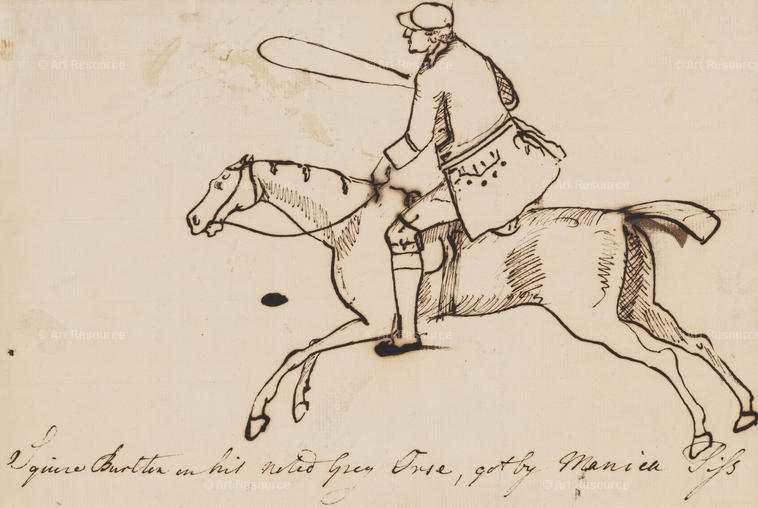 Squire Burtten on his noted Grey Orse, got by Manica Piss
© Art Resource
© Art Resource
© Art Resource
© Art Resource
© Art Resource
© Art Resource
© Art Resource
© Art Resource
© Art Resource
© Art Resource
© Art Resource
© Art Resource